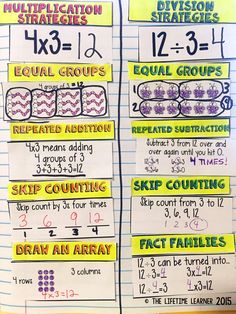 MULTIPLICATION
STRATEGIES
4x3=12
EQUAL GROUPS
4 groups of 3 = 12
REPEATED ADDITION
4x3 means adding
4 groups of 3
3+3+3+3=12
SKIP COUNTING
Skip count by 3s four times
3 6 9 12
1 2 3 4
DRAW AN ARRAY
3 columns
4 rows
4x3=12
DIVISION
STRATEGIES
12÷3=4
EQUAL GROUPS
REPEATED SUBTRACTION
Subtract 3 from 12 over and
over again until you hit 0.
4 TIMES!
SKIP COUNTING
Skip count from 3 to 12
3, 6, 9, 12
1 2 3 4
FACT FAMILIES
12÷3 can be turned into...
12÷3=4 3x4=12
12÷4=3 4x3=12
© THE LIFETIME LEARNER 2015